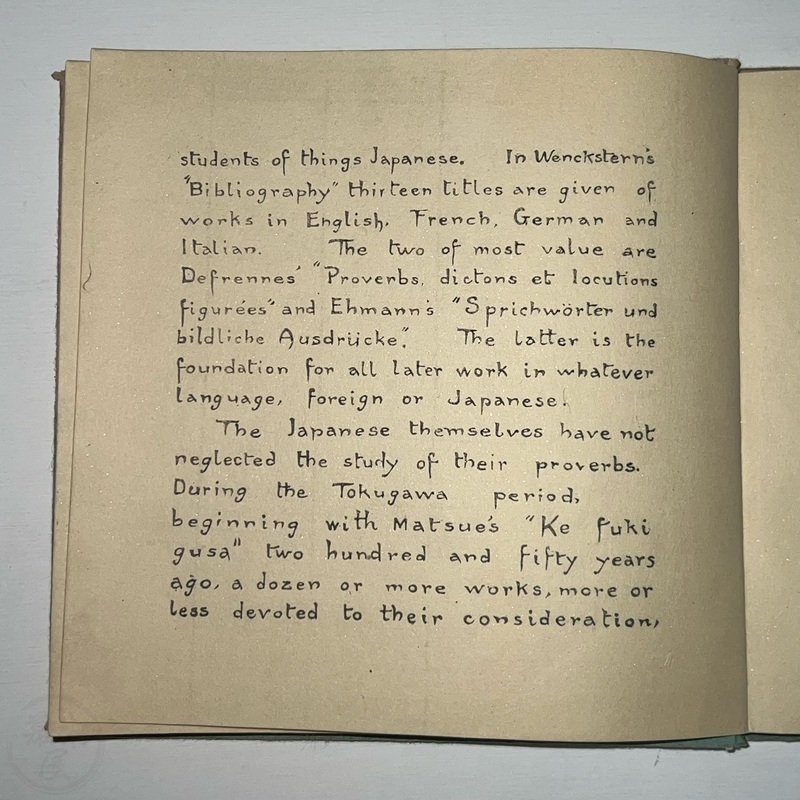 students of things Japanese. In Wenckstern's
"Bibliography" thirteen titles are given of
works in English, French, German and
Italian. The two of most value are
Defrennes' "Proverbs, dictons et locutions
figurées" and Ehmann's "Sprichwörter und
bildliche Ausdrücke". The latter is the
foundation for all later work in whatever
language, foreign or Japanese.
The Japanese themselves have not
neglected the study of their proverbs.
During the Tokugawa period,
beginning with Matsue's "Ke fuki
gusa" two hundred and fifty years
ago, a dozen or more works, more or
less devoted to their consideration,